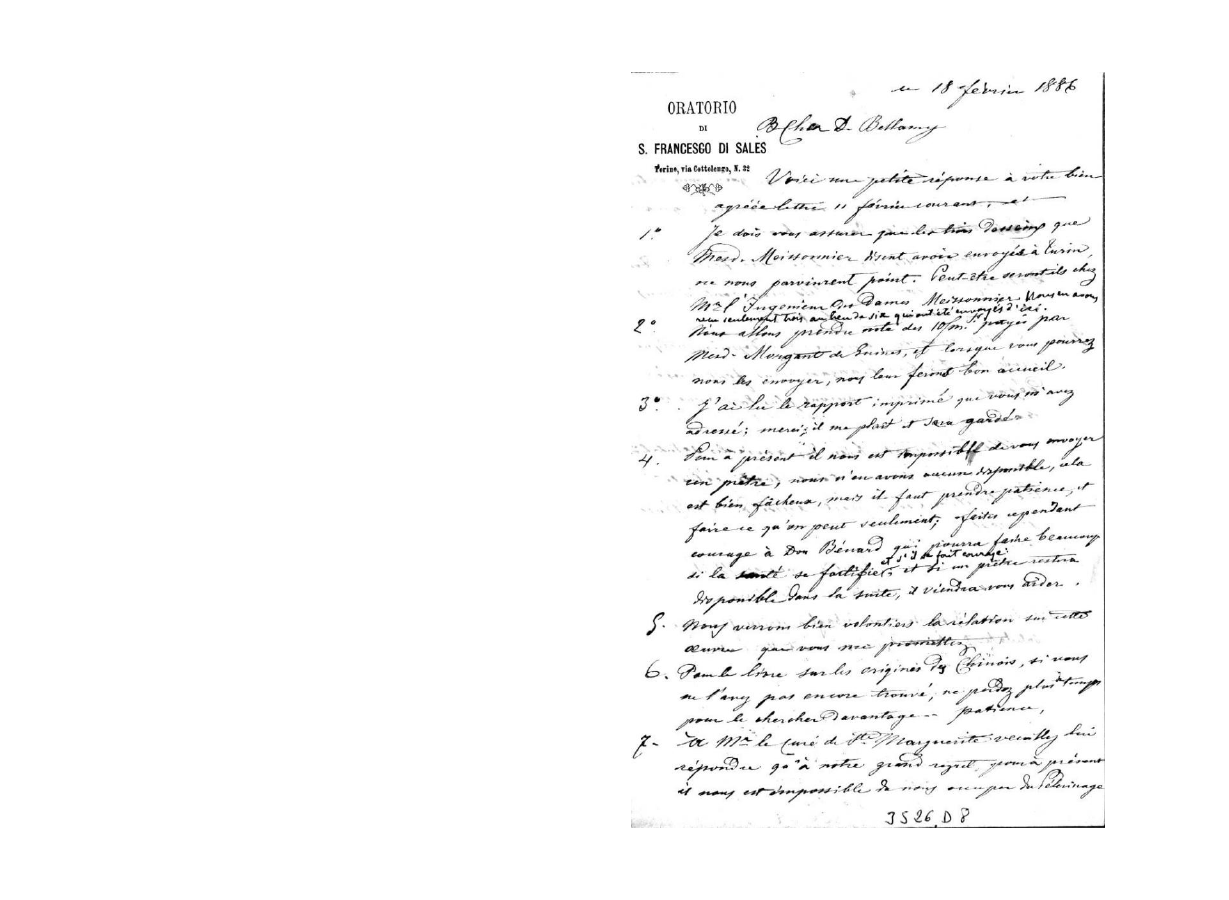 ce 18 février 1886
ORATORIO
DI
S. FRANCESCO DI SALES
Torino, via Cottolengo, N. 32
Cher D. Bellamy
Voici une petite réponse à votre bien
agréée lettre 11 février courant, et
1º Je dois vous assurer que les trois dessins que
Mesd. Meissonnier disent avoir envoyés à Turin,
ne nous parvinrent point. Peut-être seront ils chez
Mr l'Ingenieur des Dames Meissonnier. Nous en avons
reçu seulement trois au lieu de six qui ont été envoyés d'ici.
2º Nous allons prendre note des 10 payés par
Mesd. Morgant de, et lorsque vous pourrez
nous les envoyer, nous leur feront bon accueil.
3º. J'ai lu le rapport imprimé que vous m'avez
adressé; merci; il me plait et sera gardé.
4. Pour à présent il nous est impossible de vous envoyer
un prêtre, nous n'en avons aucun disponible, cela
est bien fâcheux, mais il faut prendre patience, et
faire ce qu'on peut seulement; faites cependant
courage à Don Bénard qui pourra faire beaucoup
et s'il se fait courage
si la santé se fortifie, et si un prêtre restera
disponible dans la suite, il viendra vous aider.
5. Nous verrons bien volontiers la rélation sur cette
œuvre que vous me promettez
6. Pour le livre sur les origines des Chinois, si vous
ne l'avez pas encore trouvé, ne perdez plus de temps
pour le chercher davantage - patience,
7- A Mr le Curé de Ste Marguerite veuillez lui
répondre qu'à notre grand regret, pour à présent
il nous est impossible de nous occuper du Pélerinage
3526 D 8